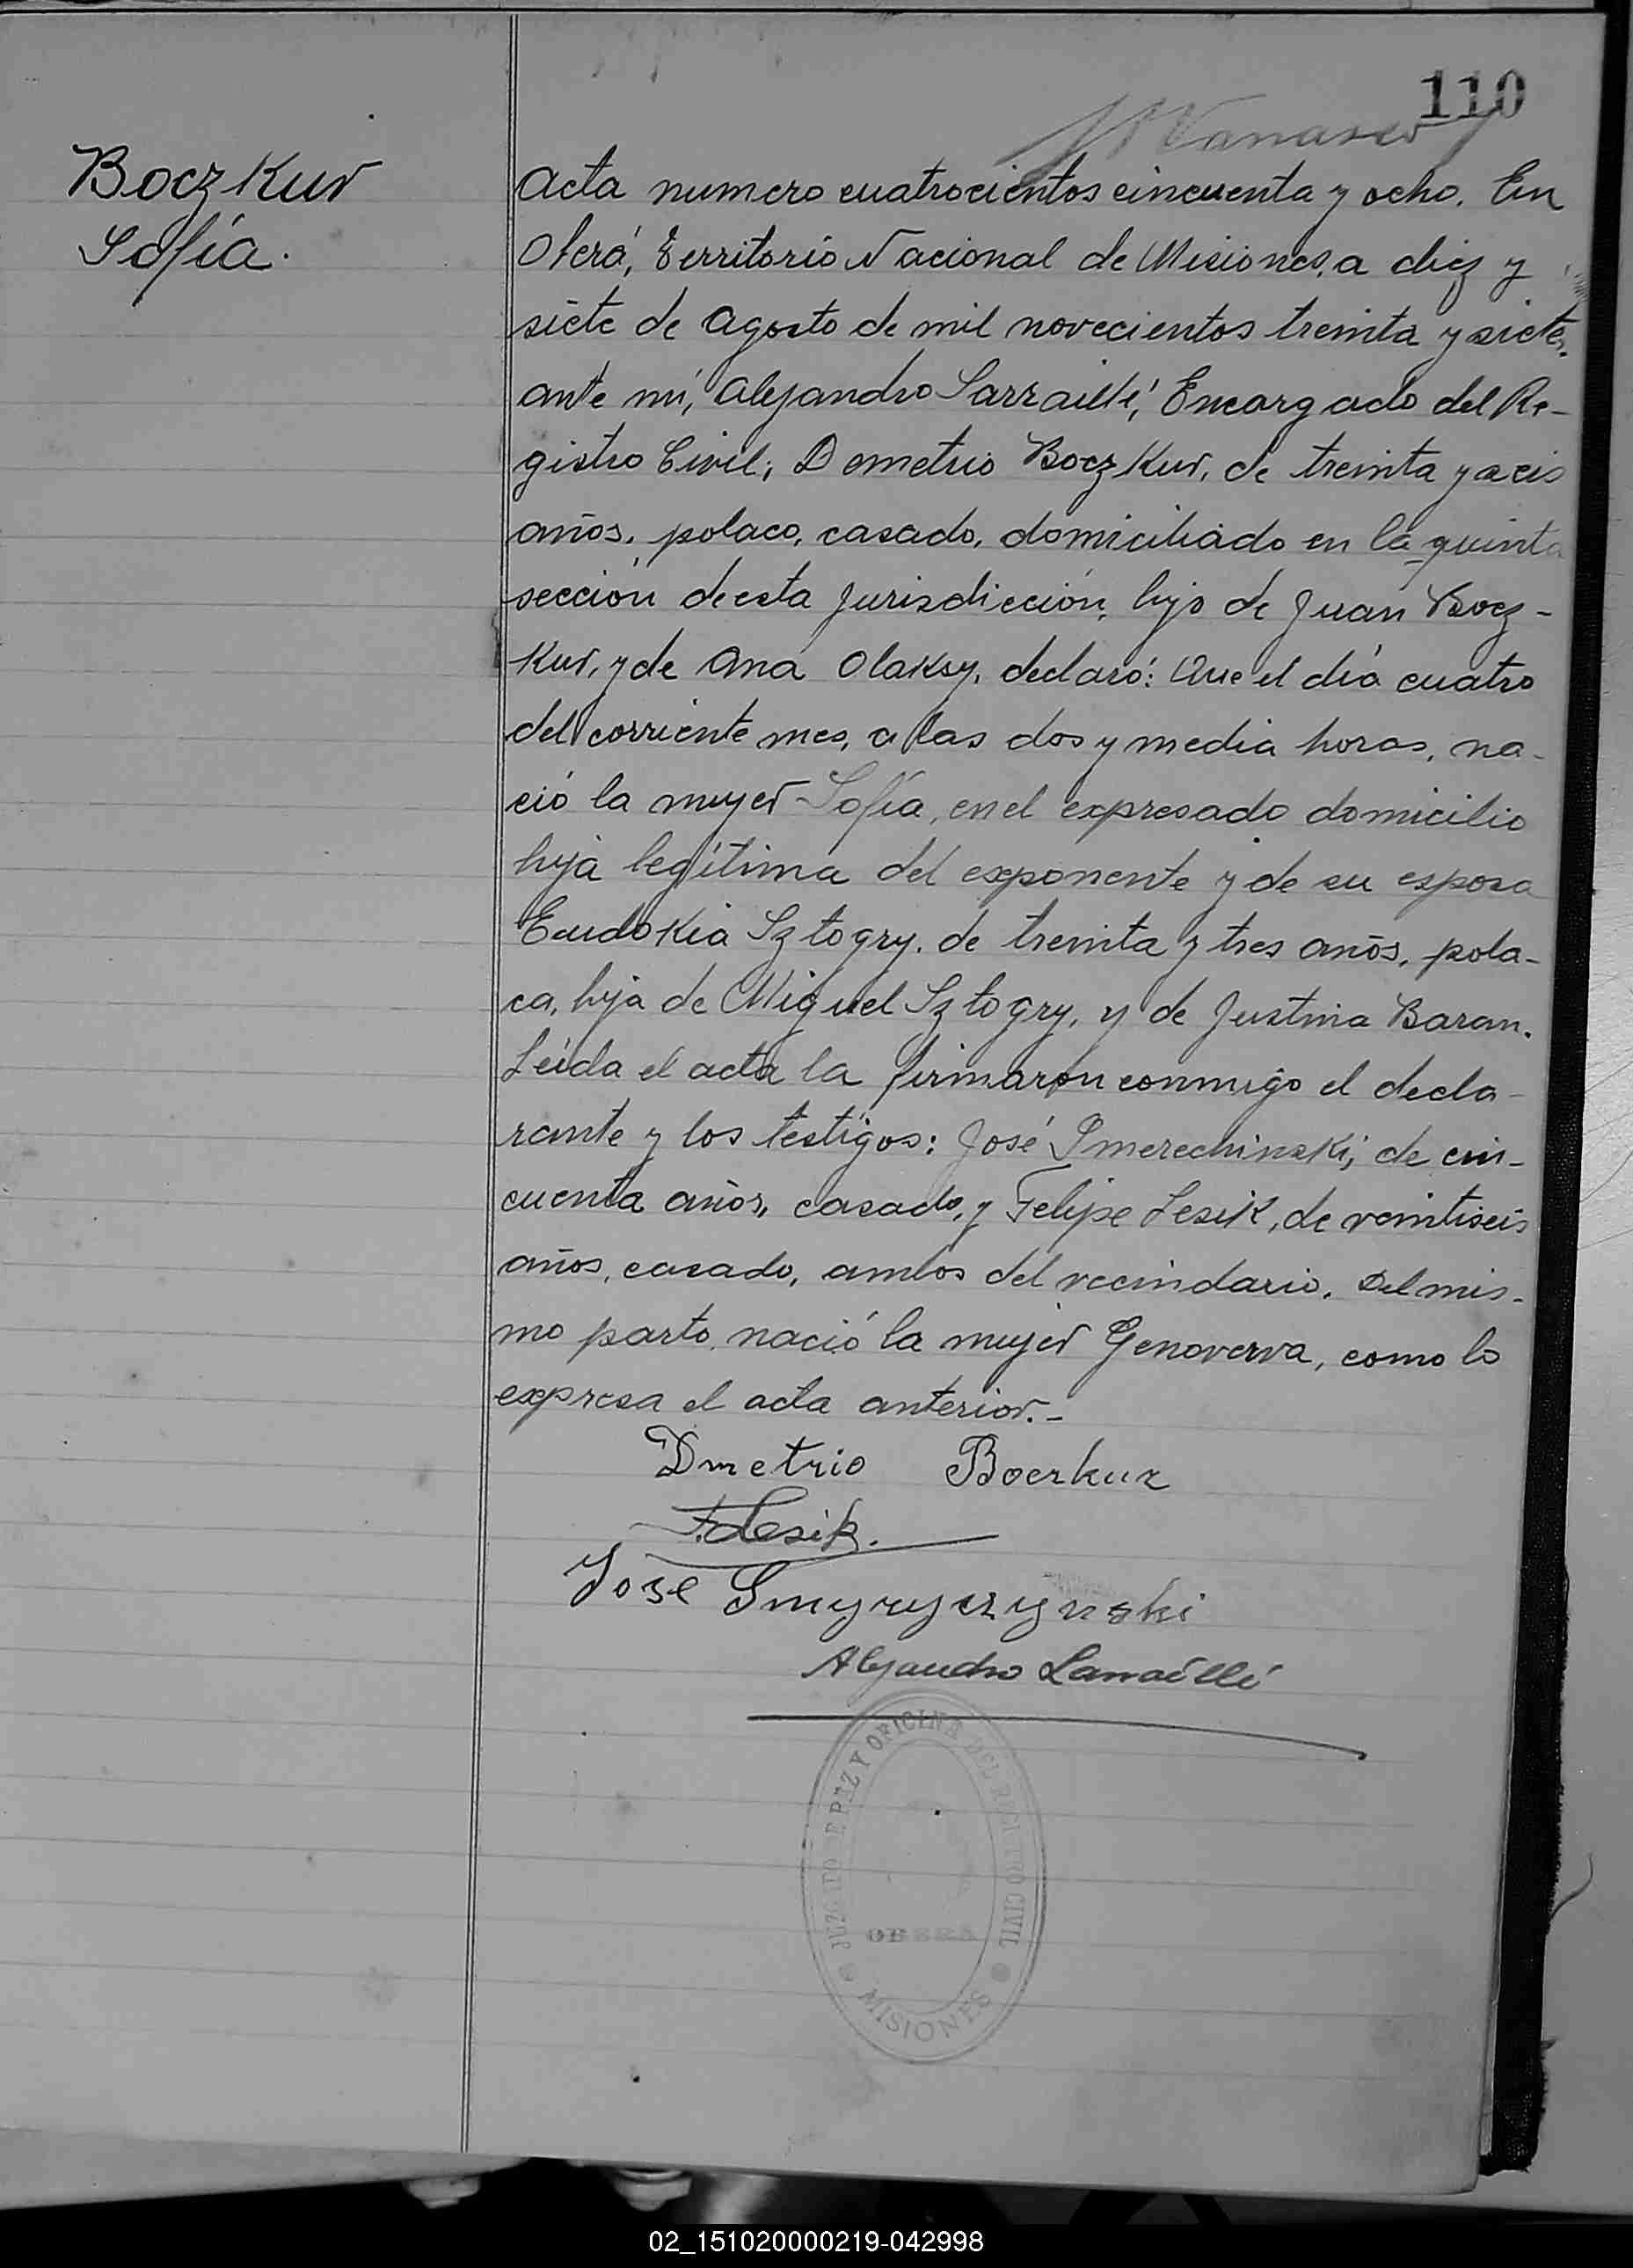 110
Boczkur
Sofía.
Acta numero cuatrocientos cincuenta y ocho. En
Oberá, Territorio Nacional de Misiones, a diez y
siete de Agosto de mil novecientos treinta y siete,
ante mí, Alejandro Sarraillé, Encargado del Re-
gistro Civil; Demetrio Boczkur, de treinta y seis
años, polaco, casado, domiciliado en la quinta
sección de esta Jurisdicción, hijo de Juan Bocz-
kur, y de Ana Olaksy, declaró: Que el día cuatro
del corriente mes, a las dos y media horas, na-
ció la mujer Sofía, en el expresado domicilio
hija legítima del exponente y de su esposa
Eudokia Sztogry, de treinta y tres años, pola-
ca, hija de Miguel Sztogry, y de Justina Baran.
Leída el acta la firmaron conmigo el decla-
rante y los testigos: José Smerechinski, de cin-
cuenta años, casado, y Felipe Lesik, de veintiseis
años, casado, ambos del vecindario. Del mis-
mo parto, nació la mujer Genoverva, como lo
expresa el acta anterior.-
Dmetrio Boczkur
F. Lesik.
Jose Smyryczynski
Alejandro Sarraillé
JUZGADO DE PAZ Y OFICINA DEL REGISTRO CIVIL
OBERA
MISIONES
02_151020000219-042998